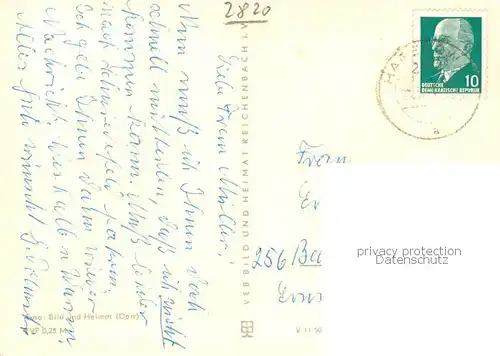 2820
Liebe Frau Müller!
Nun muß ich Ihnen doch
schnell mitteilen, daß ich nicht
kommen kann. Muß leider
nach fahren.
Ich gebe Ihnen dann wieder
Nachricht. Deshalb
Alles Gute wünscht
Foto: Bild und Heimat (Darr)
EVP 0,25 M
VEB BILD UND HEIMAT REICHENBACH I. V.
V 11 50
10
DEUTSCHE
DEMOKRATISCHE REPUBLIK
HA
a
Frau
256 Ba
privacy protection
Datenschutz